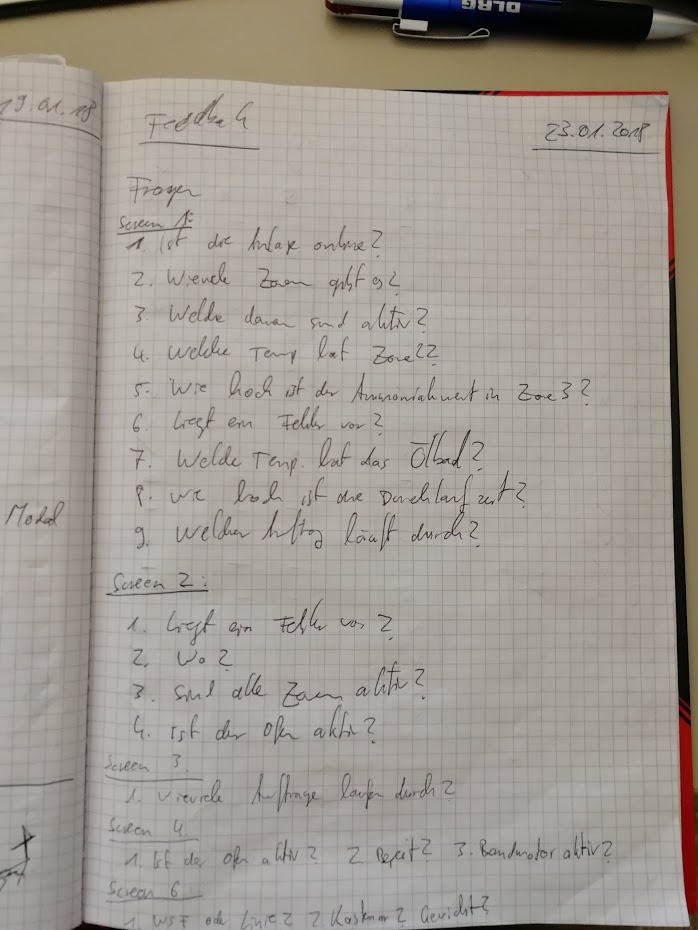 DLRG
19.01.18
Feedback
23.01.2018
Fragen
Screen 1:
1. Ist die Anlage online?
2. Wieviele Zonen gibt es?
3. Welche davon sind aktiv?
4. Welche Temp hat Zone 2?
5. Wie hoch ist der Ammoniakwert in Zone 3?
6. Liegt ein Fehler vor?
7. Welche Temp. hat das Ölbad?
8. Wie hoch ist die Durchlaufzeit?
9. Welcher Auftrag läuft durch?
Modal
Screen 2:
1. Liegt ein Fehler vor?
2. Wo?
3. Sind alle Zonen aktiv?
4. Ist der Ofen aktiv?
Screen 3
1. Vieviele Aufträge laufen durch?
Screen 4
1. Ist der Ofen aktiv? 2. Bereit? 3. Bandmotor aktiv?
Screen 6
1. oder Linie? 2. Gewicht?